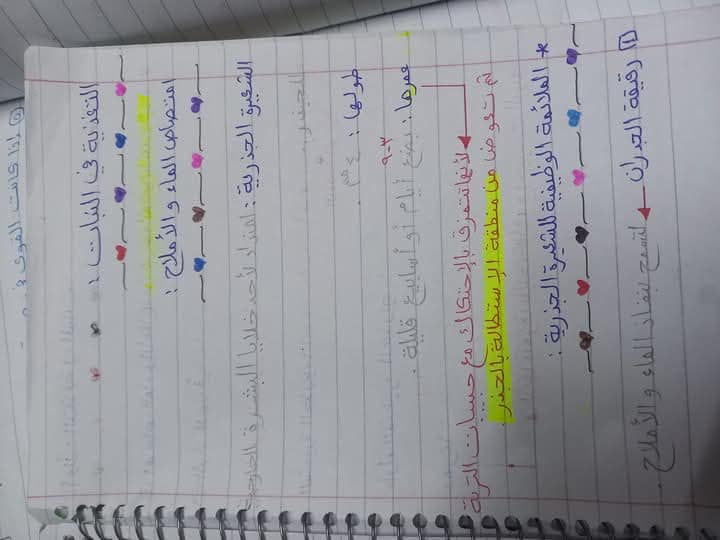 التغذية في النبات :
امتصاص الماء و الأملاح :
الشعيرة الجذرية : امتداد لأحد خلايا البشرة الخارجية
للجذر
طولها : ٤ مم .
عمرها : بضع أيام أو أسابيع قليلة .
لأنها تتمزق بالإحتكاك مع حبيبات التربة
ثم تعوض من منطقة الإستطالة بالجذر
* الملائمة الوظيفية للشعيرة الجذرية :
1 رقيقة الجدران لتسمح بنفاذ الماء و الأملاح .
إذا كانت القوى